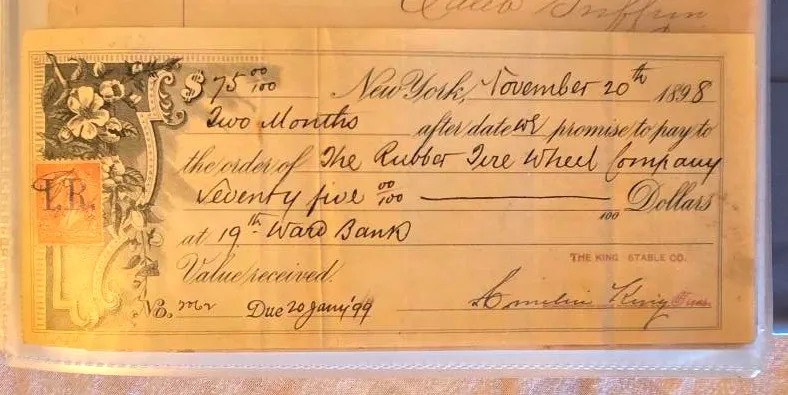 Caleb Griffin
$75 00/100 New York, November 20th 1898
Two Months after date we promise to pay to
the order of The Rubber Tire Wheel Company
Seventy five 00/100 100 Dollars
at 19th Ward Bank
I.R.
THE KING STABLE CO.
Value received.
King Treas
No. Due 20 Jany '99